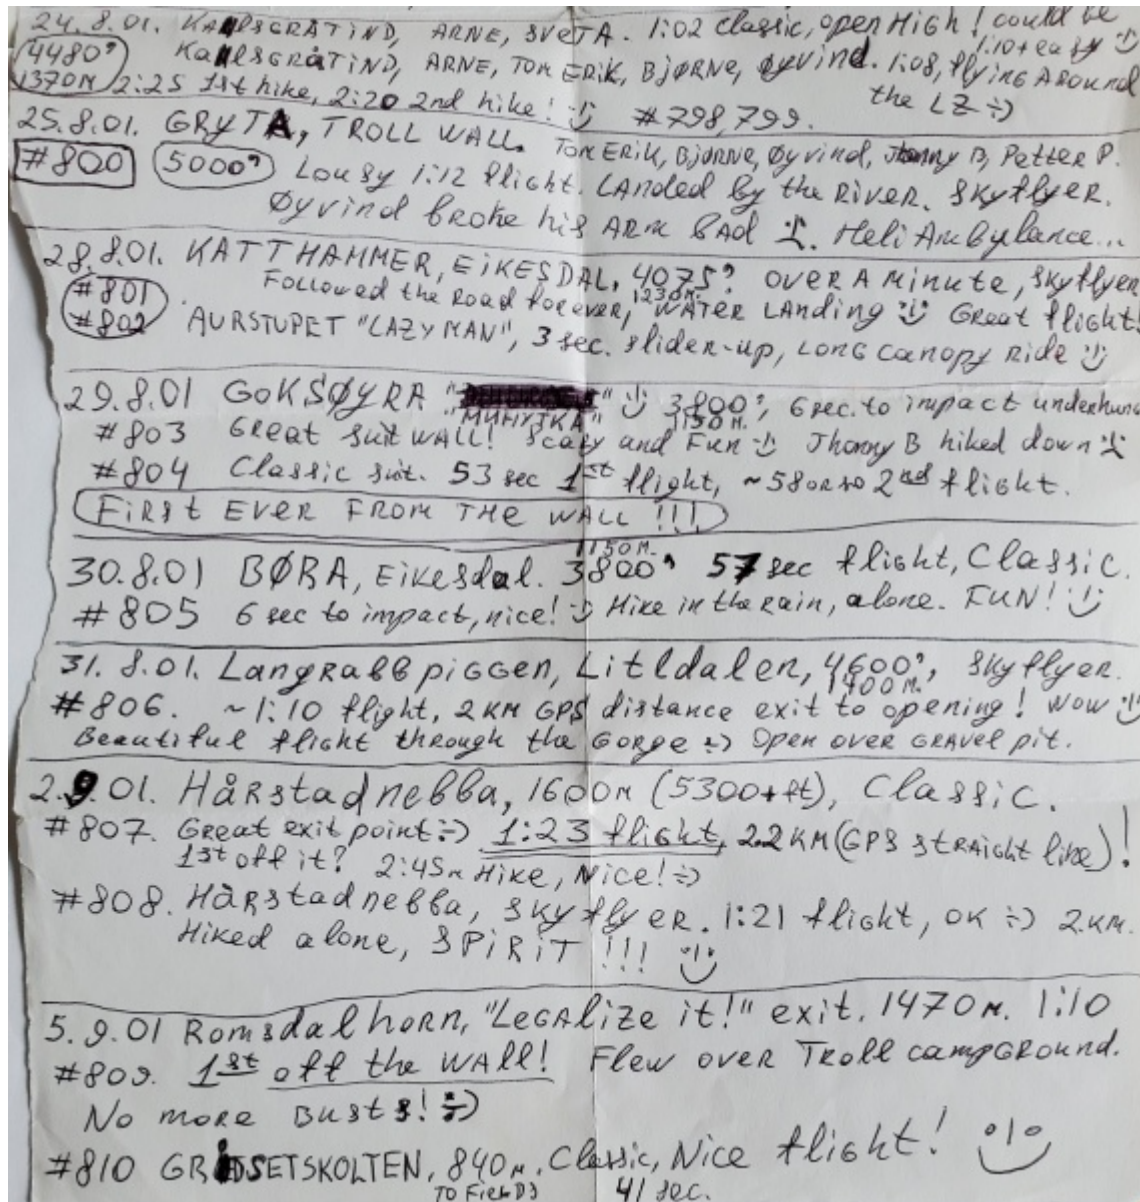 24.8.01. KALLSGRÅTIND, ARNE, SVETA. 1:02 classic, open High! could be
1:10+ easy :)
4480' KALLSGRÅTIND, ARNE, TOM ERIK, BJØRNE, Øyvind. 1:08, flying Around
1370M 2:25 1st hike, 2:20 2nd hike! :) #798,799. the LZ :)
25.8.01. GRYTA, TROLL WALL. TOM ERIK, BJØRNE, Øyvind, Jhonny B, Petter P.
#800 5000' Lousy 1:12 flight. LANded by the RIVER. SKYflyER.
Øyvind broke his ARM BAD :(. Heli Ambylance...
28.8.01. KATTHAMMER, EIKESDAL, 4075' OVER A Minute, SKyflyer
1230M.
#801 Followed the Road forever, WATER LANding :) Great flight!
#802 AURSTUPET "LAZY MAN", 3 sec. slider-up, LONG CANOPY RIDE :)
29.8.01 GOKSØYRA " " :) 3800', 6 sec. to impact underhung
"МИНУТКА" 1150 M.
#803 Great suit WALL! Scary and FUN :) Jhonny B hiked down :(
#804 Classic suit. 53 sec 1st flight, ~58 or so 2nd flight.
FIRST EVER FROM THE WALL !!!
1150M.
30.8.01 BØRA, Eikesdal. 3800' 57 sec flight, Classic.
#805 6 sec to impact, nice! :) Hike in the rain, alone. FUN! :)
31.8.01. Langrabb piggen, Litldalen, 4600', SKyflyer.
1400 M.
#806. ~1:10 flight, 2 KM GPS distance exit to opening! WOW :)
Beautiful flight through the Gorge :) Open over GRAVEL pit.
2.9.01. Hårstadnebba, 1600M (5300+ft), Classic.
#807. Great exit point :) 1:23 flight, 2.2 KM (GPS STRAIGHT line)!
1st off it? 2:45M Hike, Nice! :)
#808. Hårstadnebba, SKyflyER. 1:21 flight, OK :) 2KM.
Hiked alone, SPIRIT !!! :)
5.9.01 Romsdalhorn, "LEGALize it!" exit. 1470M. 1:10
#809. 1st off the WALL! Flew over TROll campGROUnd.
No more Busts! :)
#810 GRÅSETSKOLTEN, 840M. Classic, Nice flight! :)
TO FIELDS 41 sec.